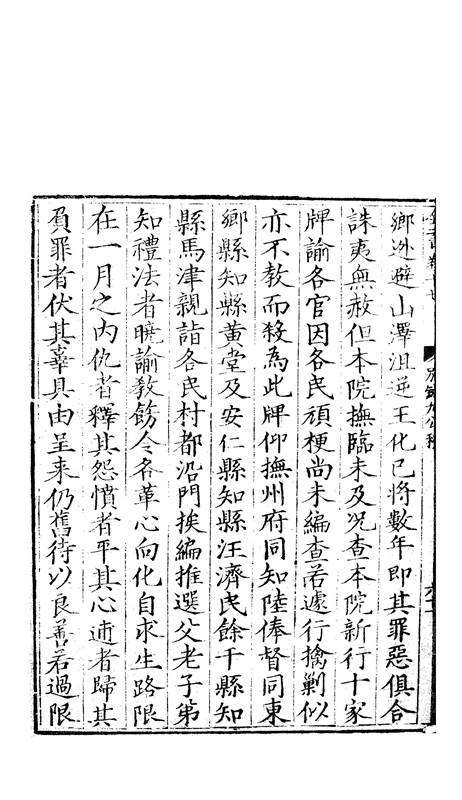 鄉迯避山澤沮逆王化已將數年即其罪惡俱合
誅夷無赦但本院撫臨未及况查本院新行十家
牌諭各官因各民頑梗尚未編查若遽行擒剿似
亦不教而殺爲此牌仰撫州府同知陸俸督同東
鄉縣知縣黄堂及安仁縣知縣汪濟民餘干縣知
縣馬津親詣各民村都沿門挨編推選父老子弟
知禮法者曉諭教飭令各革心向化自求生路限
在一月之内仇者釋其怨憤者平其心逋者歸其
負罪者伏其辜具由呈来仍舊待以良善若過限